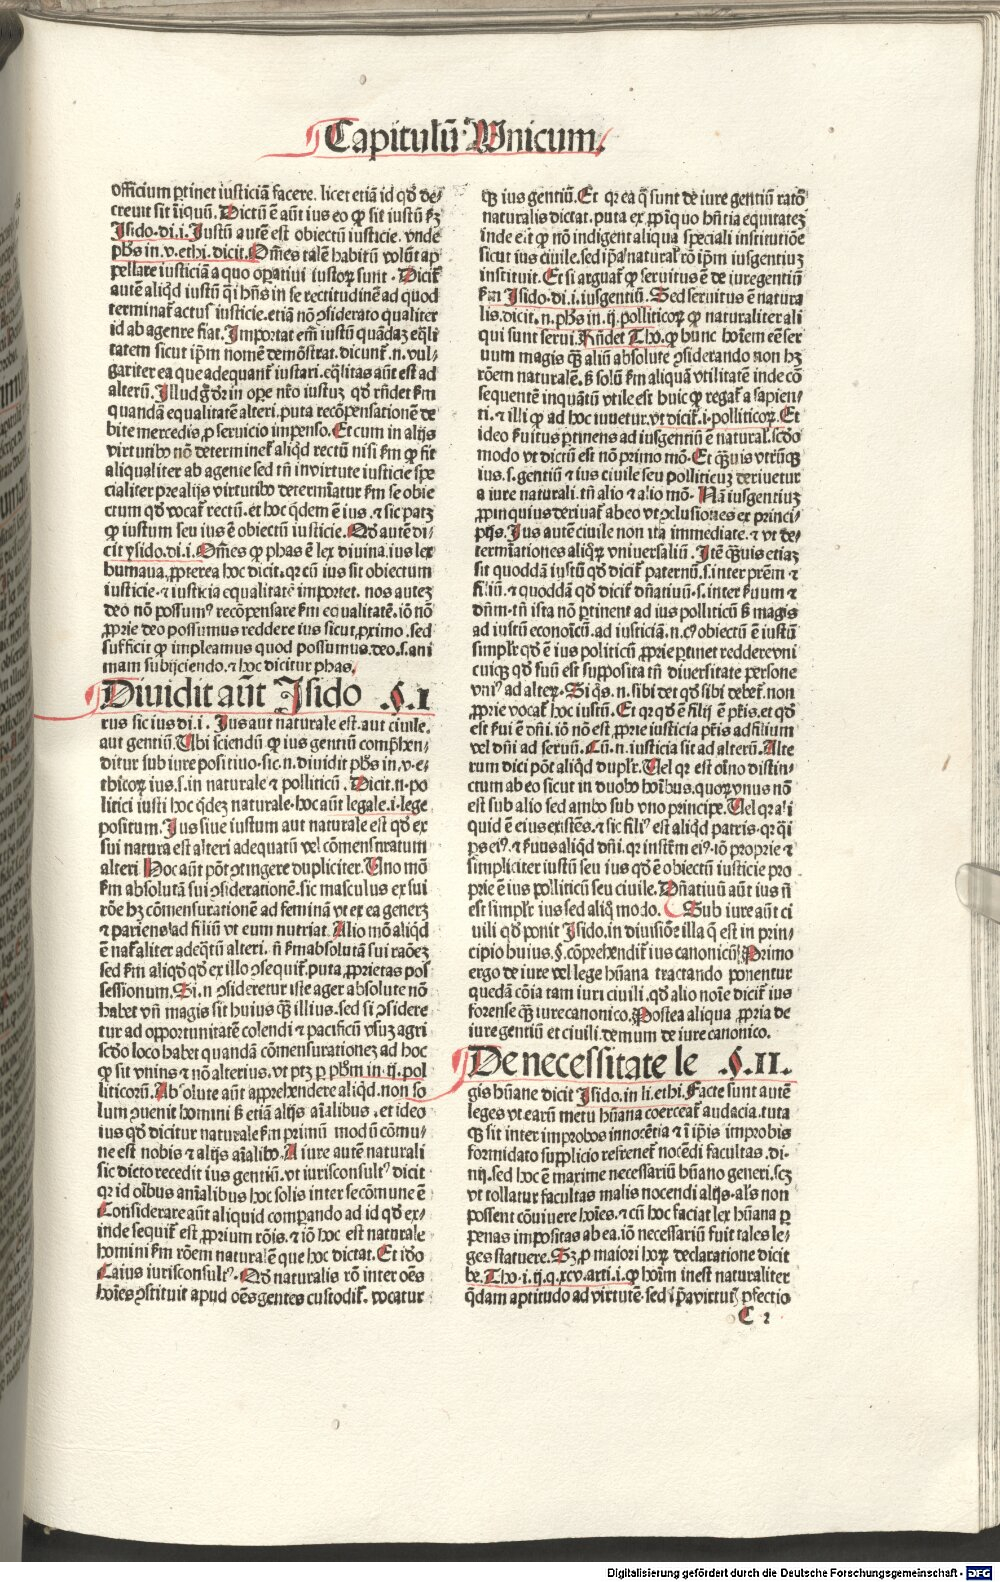 Capitulū Vnicum.
officium ꝑtinet iusticiā facere. licet etiā id qd̄ de⸗
creuit sit īiquū. Dictū ē aūt ius eo ꝙ sit iustū ẜm
Isido. di. i. Iustū autē est obiectū iusticie. vnde
pħs in. v. ethi. dicit. Om̄es talē habitū volūt ap
pellare iusticiā a quo oꝑatiui iustoꝝ sunt. Dicit̄
autē aliqd̄ iustū qͥ hn̄s in se rectitudinē ad quod
terminat̄ actus iusticie. etiā nō ꝯsiderato qualiter
id ab agente fiat. Importat em̄ iustū quādaꝫ eq̄li
tatem sicut ip̄m nomē demōstrat. dicunt̄. n. vul⸗
gariter ea que adequant̄ iustari. eq̄litas aūt est ad
alterū. Illud gͦ dr̄ in oꝑe nr̄o iustuꝫ qd̄ rn̄det ẜm
quandā equalitatē alteri. puta recōpensationē de
bite mercedis ꝓ seruicio impenso. Et cum in alijs
virtutibꝰ nō determinet̄ aliqd̄ rectū nisi ẜm ꝙ fit
aliqualiter ab agente sed tn̄ in virtute iusticie spe
cialiter pre alijs virtutibꝰ determīatur ẜm se obie
ctum qd̄ vocat̄ rectū. et hoc qͥdem ē ius. ⁊ sic patꝫ
ꝙ iustum seu ius ē obiectū iusticie. Qd̄ autē di⸗
cit ysido. di. i. Om̄es ꝙ phas ē lex diuina. ius lex
humana. ꝓpterea hoc dicit. qꝛ cū ius sit obiectum
iusticie. ⁊ iusticia equalitatē importet. nos auteꝫ
deo nō possumꝰ recōpensare ẜm equalitatē. iō nō
ꝓprie deo possumus reddere ius sicut ꝓximo. sed
sufficit ꝙ impleamus quod possumus. deo. s. ani
mam subijciendo. ⁊ hoc dicitur phas.
Diuidit aūt Isido .§. I
rus sic ius di. i. Ius aut naturale est. aut ciuile.
aut gentiū. Vbi sciendū ꝙ ius gentiū comp̄hen⸗
ditur sub iure positiuo. sic. n. diuidit pħs in. v. e⸗
thicoꝝ ius. s. in naturale ⁊ polliticū. Dicit. n. po
litici iusti hoc qͥdeꝫ naturale. hoc aūt legale. i. lege
positum. Ius siue iustum aut naturale est qd̄ ex
sui natura est alteri adequatū vel cōmensuratum
alteri Hoc aūt pōt ꝯtingere dupliciter. Vno mō
ẜm absolutā sui ꝯsiderationē. sic masculus ex sui
rōe hꝫ cōmensurationē ad feminā vt ex ea generꝫ
⁊ pariens ad filiū vt eum nutriat. Alio mō aliqd̄
ē nat̄aliter adeq̄tū alteri. n̄ ẜm absolutā sui raōeꝫ
sed ẜm aliqd̄ qd̄ ex illo ꝯsequit̄. puta ꝓprietas pos
sessionum. Si. n ꝯsideretur iste ager absolute nō
habet vn̄ magis sit huius qͣꝫ illius. sed si ꝯsidere
tur ad opportunitatē colendi ⁊ pacificū vsuꝫ agri
scd̓o loco habet quandā cōmensurationeꝫ ad hoc
ꝙ sit vnius ⁊ nō alterius. vt ptꝫ ꝑ pħm in. ij. pol
liticorū. Absolute aūt apprehendere aliqd̄. non so
lum ꝯuenit homini sꝫ etiā alijs aīalibus. ⁊ ideo
ius qd̄ dicitur naturale ẜm primū modū cōmu⸗
ne est nobis ⁊ alijs aīalibꝰ. A iure autē naturali
sic dicto recedit ius gentiū. vt iurisconsultꝰ dicit
qꝛ id oībus anīalibus hoc solis inter se cōmune ē
Considerare aūt aliquid comꝑando ad id qd̄ ex⸗
inde sequit̄ est ꝓprium rōis. ⁊ iō hoc est naturale
homini ẜm rōem naturalē que hoc dictat. Et id̓o
Gaius iurisconsultꝰ. Qd̄ naturalis rō inter oēs
hoīes ꝯstituit apud oēs gentes custodit̄. vocatur
qꝫ ius gentiū. Et qꝛ ea q̄ sunt de iure gentiū ratō
naturalis dictat. puta ex ꝓpīquo hn̄tia equitateꝫ
inde est ꝙ nō indigent aliqua speciali institutiōe
sicut ius ciuile. sed ip̄a natural̓ rō ip̄m iusgentiuꝫ
instituit. Et si arguat̄ ꝙ seruitus ē de iuregentiū
ẜm Isido. di. i. iusgentiū. Sed seruitus ē natura
lis. dicit. n. pħs in. ij. polliticoꝝ ꝙ naturaliter ali
qui sunt serui. Rn̄det Tho. ꝙ hunc hoīem eē ser
uum magis qͣꝫ aliū absolute ꝯsiderando non hꝫ
rōem naturalē. sꝫ solū ẜm aliquā vtilitatē inde cō
sequentē inquātū vtile est huic ꝙ regat̄ a sapien⸗
ti. ⁊ illi ꝙ ad hoc iuuetur. vt dicit̄. i. polliticoꝝ. Et
ideo ẜuitus ꝑtinens ad iusgentiū ē natural̓. scd̓o
modo vt dictū est nō primo mō. Et qͣꝫuis vtrūqꝫ
ius. s. gentiū ⁊ ius ciuile seu pollitieuꝫ deriuetur
a iure naturali. tn̄ alio ⁊ alio mō. Nā iusgentiuꝫ
ꝓpinquius deriuat̄ ab eo vt ꝯclusiones ex princi⸗
pijs. Ius autē ciuile non ita immediate. ⁊ vt de⸗
termīationes aliqͦꝝ vniuersaliū. Itē qͣꝫuis etiaꝫ
sit quoddā iustū qd̄ dicit̄ paternū. s. inter pr̄em ⁊
filiū. ⁊ quoddā qd̄ dicit̄ dn̄atiuū. s. inter ẜuum ⁊
dn̄m. tn̄ ista nō ꝑtinent ad ius polliticū sꝫ magis
ad iustū econoīcū. ad iusticiā. n. cꝰ obiectū ē iustū
simplr̄ qd̄ ē ius politicū ꝓprie ꝑtinet reddere vni
cuiqꝫ qd̄ suū est supposita tn̄ diuersitate persone
vniꝰ ad alteꝝ. Si qͥs. n. sibi det qd̄ sibi debet̄. non
ꝓprie vocat̄ hoc iustū. Et qꝛ qd̄ ē filij ē pr̄is. et qd̄
est ẜui ē dn̄i. iō nō est ꝓprie iusticia pr̄is ad filium
vel dn̄i ad seruū. Cū. n. iusticia sit ad alterū. Alte
rum dici pōt aliqd̄ duplr̄. Vel qꝛ est oīno distin⸗
ctum ab eo sicut in duobꝰ hoībus. quoꝝ vnus nō
est sub alio sed ambo sub vno principe. Vel qꝛ ali
quid ē eius existēs. ⁊ sic filiꝰ est aliqd̄ patris. qꝛ qͥi
ps eiꝰ. ⁊ ẜuus aliqd̄ dn̄i. qꝛ instr̄m eiꝰ. iō proprie ⁊
simpliciter iustū seu ius qd̄ ē obiectū iusticie pro
prie ē ius polliticū seu ciuile. Dn̄atiuū aūt ius n̄
est simplr̄ ius sed aliqͦ modo. Sub iure aūt ci
uili qd̄ ponit Isido. in diuisiōe illa q̄ est in prin⸗
cipio huius. §. cōprehendit̄ ius canonicū. Primo
ergo de iure vel lege hūana tractando ponentur
quedā cōia tam iuri ciuili. qd̄ alio noīe dicit̄ ius
forense qͣꝫ iure canonico. Postea aliqua ꝓpria de
iure gentiū et ciuili. demum de iure canonico.
De necessitate le .§. II.
gis hūane dicit Isido. in li. ethi. Facte sunt autē
leges vt earū metu hūana coerceat̄ audacia. tuta
qꝫ sit inter improbos innocētia ⁊ ī ip̄is improbis
formidato supplicio refrenet̄ nocēdi facultas. di⸗
nij. sed hoc ē maxime necessariū hūano generi. scꝫ
vt tollatur facultas malis nocendi alijs. als̄ non
possent cōuiuere hoīes. ⁊ cū hoc faciat lex hūana ꝑ
penas impositas ab ea. iō necessariū fuit tales le⸗
ges statuere. Sꝫ ꝓ maiori hoꝝ declaratione dicit
be. Tho. i. ij. q. xcv. arti. i. ꝙ hoīm inest naturaliter
qͣdam aptitudo ad virtutē. sed ip̄a virtutꝭ ꝑfectio
C 2
Digitalisierung gefördert durch die Deutsche Forschungsgemeinschaft - DFG